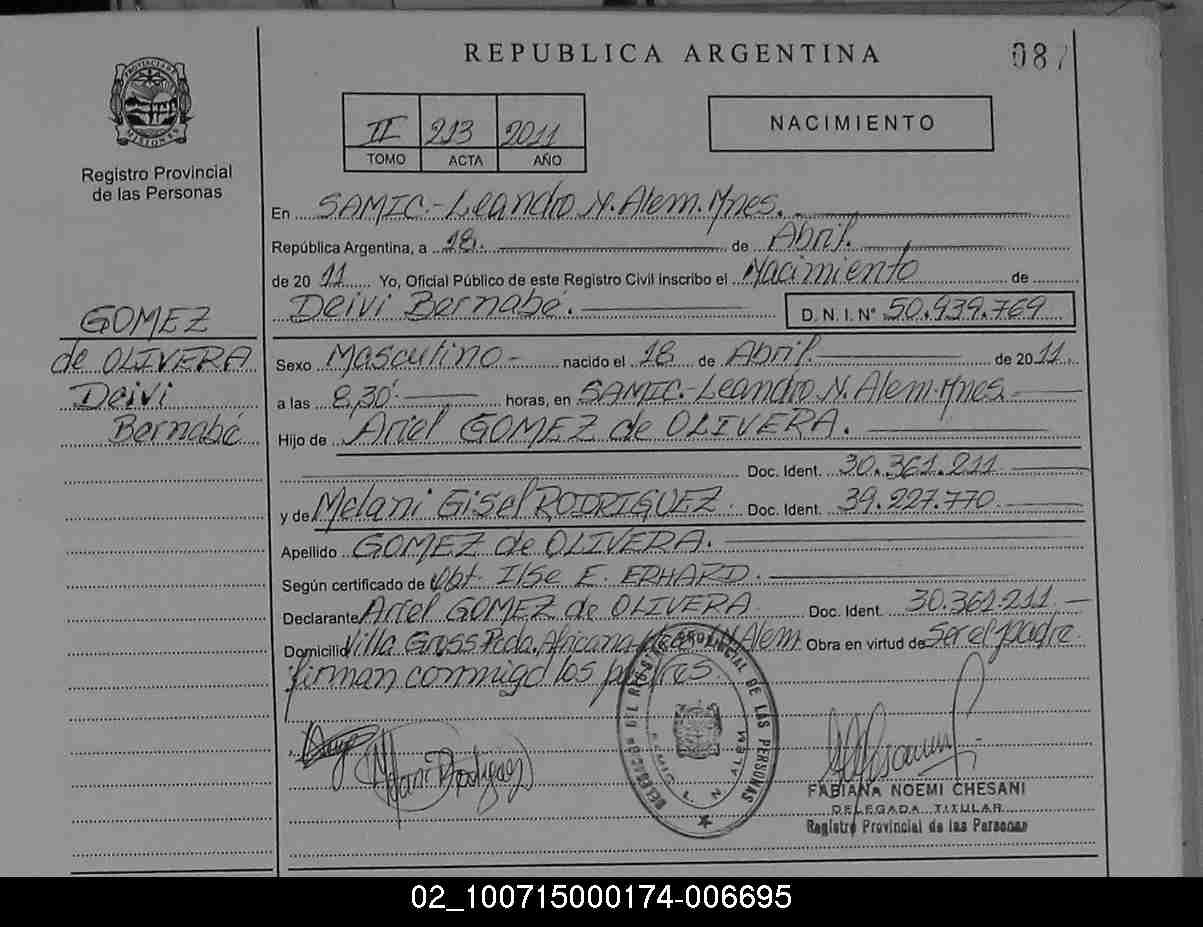 REPUBLICA ARGENTINA
087
PROVINCIA DE MISIONES
Registro Provincial
de las Personas
II 213 2011
TOMO ACTA AÑO
NACIMIENTO
En SAMIC.-Leandro N. Alem. Mnes.
República Argentina, a 18. de Abril.
de 20 11 Yo, Oficial Público de este Registro Civil inscribo el Nacimiento de
Deivi Bernabé. D. N. I. N° 50.939.769
GOMEZ
de OLIVERA
Deivi
Bernabé
Sexo Masculino- nacido el 18 de Abril. de 2011.
a las 8,30' horas, en SAMIC.-Leandro N. Alem. Mnes.
Hijo de Ariel GOMEZ de OLIVERA.
Doc. Ident. 30.361.211
y de Melani Gisel RODRIGUEZ. Doc. Ident. 39.227.770
Apellido GOMEZ de OLIVERA.
Según certificado de Obt. Ilse E. ERHARD.
Declarante Ariel GOMEZ de OLIVERA. Doc. Ident. 30.361.211.
Domicilio Villa Gross Pcda. Africana Alem Obra en virtud de ser el padre.
firman conmigo los padres
DELEGACION DEL REGISTRO PROVINCIAL DE LAS PERSONAS
SAMIC L. N. ALEM
FABIANA NOEMI CHESANI
DELEGADA TITULAR
Registro Provincial de las Personas
02_100715000174-006695